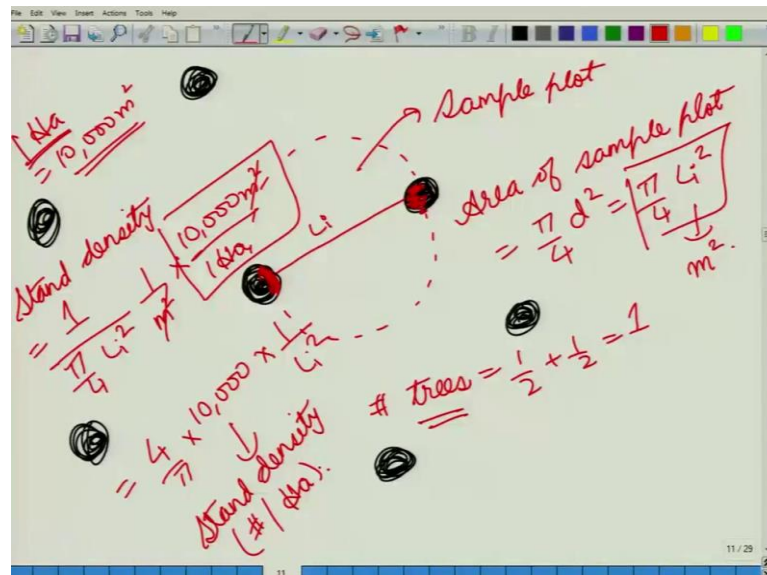 File Edit View Insert Actions Tools Help
B I
1 Ha
= 10,000 m²
Sample plot
Area of sample plot
= π/4 d² = π/4 Li²
m².
Li
Stand density
= 1/(π/4 Li²) 1/m² × 10,000 m²/1 Ha
= 4/π × 10,000 × 1/Li²
Stand density
(#/Ha).
# trees = 1/2 + 1/2 = 1
11 / 29
11